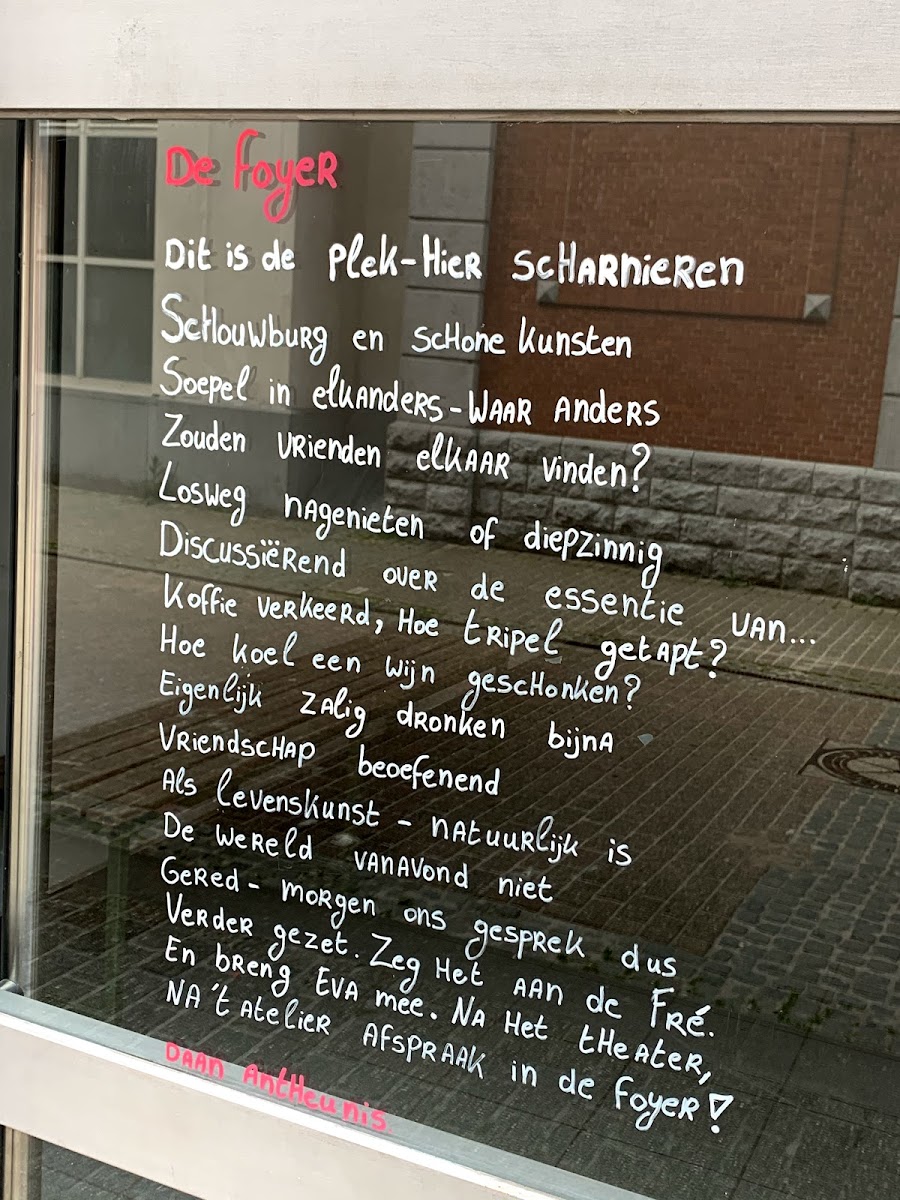 De Foyer
Dit is de plek - Hier scharnieren
Schouwburg en schone kunsten
Soepel in elkanders - waar anders
Zouden vrienden elkaar vinden?
Losweg nagenieten of diepzinnig
Discussiërend over de essentie van...
Koffie verkeerd, Hoe tripel getapt?
Hoe koel een wijn geschonken?
Eigenlijk zalig dronken bijna
Vriendschap beoefenend
Als levenskunst - natuurlijk is
De wereld vanavond niet
Gered - morgen ons gesprek dus
Verder gezet. Zeg het aan de Fré.
En breng Eva mee. Na het theater,
Na 't atelier afspraak in de foyer!
Daan Antheunis